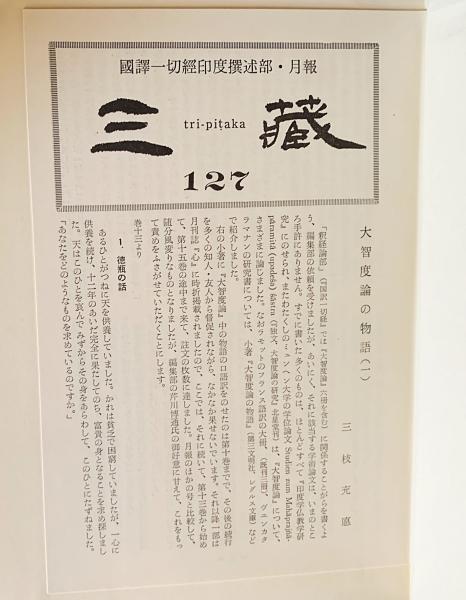 國譯一切經印度撰述部・月報
三藏
tri-piṭaka
127
大智度論の物語(一)
三枝充悳
「釈経論部」(『国訳一切経』では『大智度論』六冊を含む)に関係することがらを書くよ
う、編集部の依頼を受けましたが、あいにく、それに該当する学術論文は、いまのとこ
ろ手許にありません。すでに書いた多くのものは、ほとんどすべて『印度学仏教学研
究』にのせられ、またわたくしのミュンヘン大学の学位論文 Studien zum Mahāprajñā-
pāramitā (upadeśa) śāstra (『独文、大智度論の研究』北星堂刊)は、『大智度論』について、
さまざまに論じました。なおラモットのフランス語訳の大冊、(既刊三冊)、ヴェンカタ
ラマナンの研究書については、小著、『大智度論の物語』(第三文明社、レグルス文庫)など
で紹介しました。
右の小著に『大智度論』中の物語の口語訳をのせたのは第十巻までで、その後の続行
を多くの知人・友人から督促されながら、なかなか果せないでいます。それ以降一部は
月刊誌『心』に時折掲載されましたので、ここでは、それに続いて、第十三巻から始め
て、第十五巻の途中まで来て、註文の枚数に達しました。月報のほかの号と比較して、
随分風変りなものとなりましたが、編集部の芹川博通氏の御好意に甘えて、これをもっ
て責めをふさがせていただくことにします。
巻十三より
1. 徳瓶の話
あるひとがつねに天を供養していました。かれは貧乏で困窮していましたが、一心に
供養を続け、十二年のあいだ完全に果たしてのち、富貴の身となることを求め探しまし
た。天はこのひとを哀んで みずからその身をあらわして、このひとにたずねました。
「あなたをどのようなものを求めているのですか。」